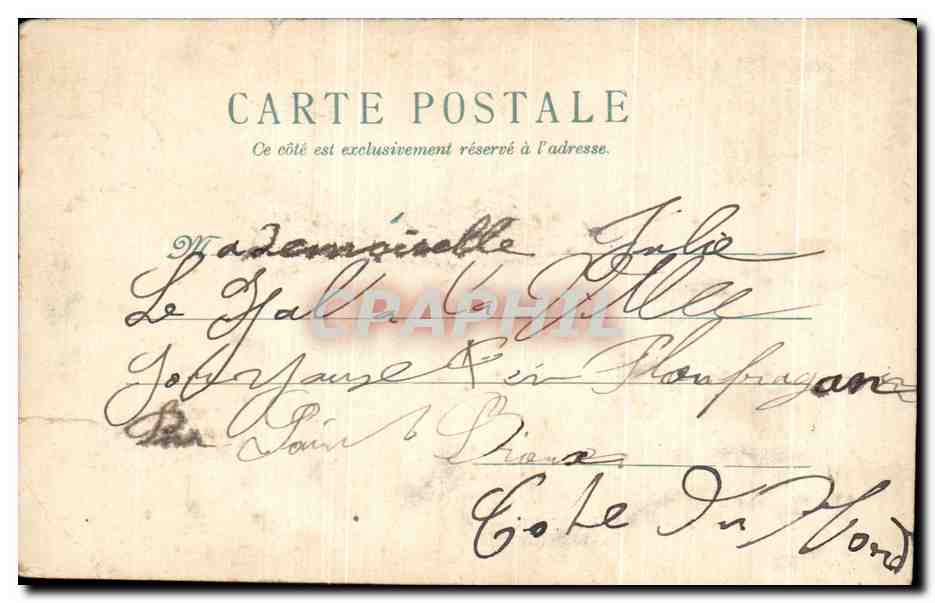 CARTE POSTALE
Ce côté est exclusivement réservé à l'adresse.
Mademoiselle Julie
Le Gall a la Ville
en Ploufragan
Par Saint Brieux
Cote du Nord
CPAPHIL